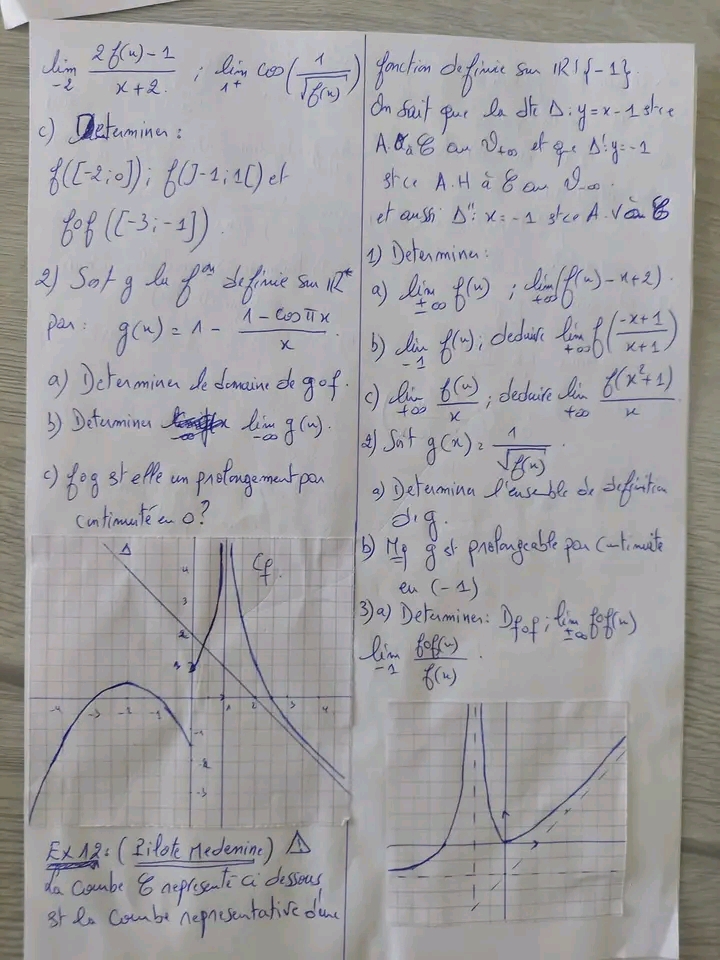 lim 2f(x)-1 / x+2 ; lim cos(1/√f(x))
-2 1⁺
c) Determiner :
f([-2;0]) ; f(]-1;1[) et
fof([-3;-1]).
2) Soit g la fᵒⁿ definie sur IR*
par : g(x) = 1 - 1-cosπx / x.
a) Determiner le domaine de gof.
b) Determiner lim g(x).
-∞
c) fog st elle un prolongement par
continuité en 0 ?
Δ Cf.
4
3
2
1
-4 -3 -2 -1 1 2 3 4
-1
-2
-3
Ex 12 : (Pilote Medenine)
La courbe C representé ci dessous
st la courbe representative d'une
fonction definie sur IR\{-1}.
On sait que la dte Δ: y=x-1 st ce
A.O à C au V+∞ et que Δ': y=-1
st ce A.H à C au V-∞.
et aussi Δ'': x=-1 st ce A.V à C
1) Determiner :
a) lim f(x) ; lim (f(x)-x+2).
±∞ +∞
b) lim f(x); deduire lim f(-x+1 / x+1)
-1 +∞
c) lim f(x)/x ; deduire lim f(x²+1)/x
+∞ +∞
2) Soit g(x) = 1/√f(x).
a) Determiner l'ensemble de definition
de g.
b) Mq g est prolongeable par continuite
en (-1)
3) a) Determiner : Dfof ; lim fof(x)
±∞
lim fof(x)/f(x).
-1